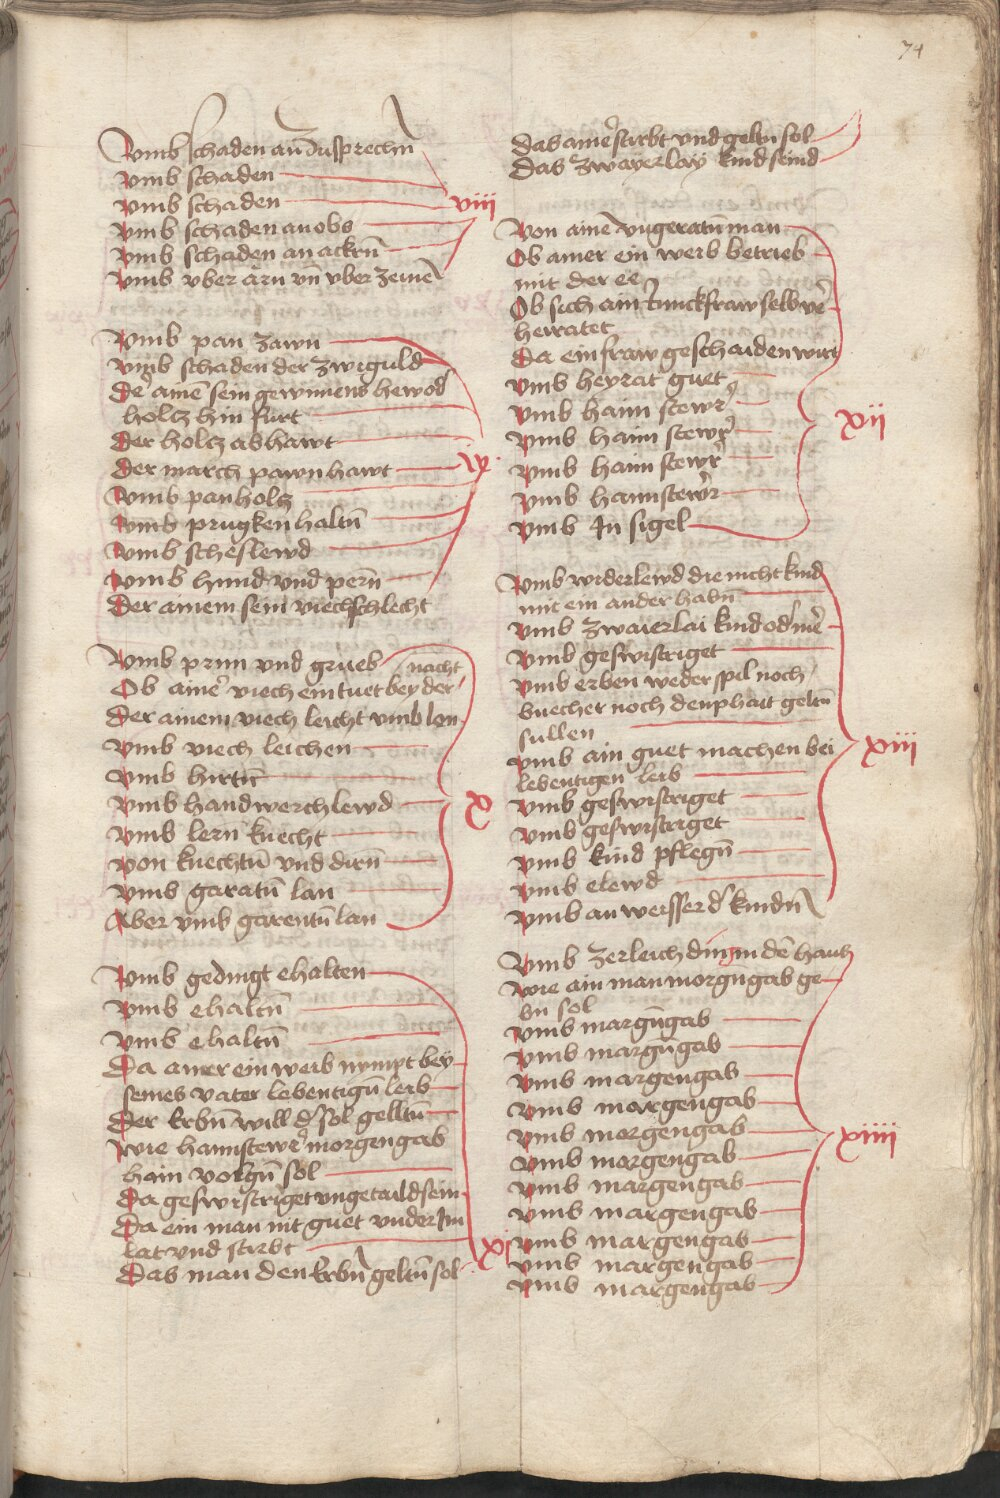 74
Vmb schaden an zusprechn̄
vmb schaden
vmb schaden
vmb schaden an obs
vmb schaden an ackrn̄
vmb vber ärn vn̄ vber zeinē
viii
Vmb pan zawn
vmb schaden der zwiguld
De' ainē sein gewinnens hew od'
holtz hin fürt
Der holtz abhawt
Der march pawm hawt
vmb panholtz
vmb prugken haltn̄
vmb scheflewd
vmb hund vnd pern̄
Der ainem sein viech schlecht
ix
Vmb prun vnd grueb
Ob aine' viech ein tuet bey der nacht
Der ainem viech leicht vmb lon
vmb viech leichen
vmb hirtn̄
vmb handwerchlewd
vmb lern knecht
von knechtn̄ vnd dirn̄
vmb garatn̄ lan
Aber vmb garentn̄ lan
x
Vmb gedingt ehalten
vmb ehaltn̄
vmb ehaltn̄
Da ainer ein weib nympt bey
seines vater lebentign̄ leib
Der Erbn̄ will d' sol gelltn̄
wie haimstewe' morgengab
hain volgn̄ sol
Da geswistriget vngetaild sein
Da ein man nit guet vnder Im
lat vnd stirbt
Das man den Erbn̄ geltn̄ sol
xi
Das aine' stirbt vnd geltn̄ sol
Das zwayerlay kind seind
Von ainē vngeratn̄ man
Ob ainer ein weib betrieb
mit der ee
Ob sich ain Junckfraw selb ve'
heiratet
Da ein fraw geschaiden wirt
vmb heyrat guet
vmb haim stewr
vmb haim stewr
vmb haim stewr
vmb haimstewr
vmb In sigel
xii
Vmb widerlewd die nicht kind
mit ein ander habn̄
vmb zwaierlai kind od' me'
vmb geswistriget
vmb erben weder spil noch
buecher noch denphait geltn̄
sullen
vmb ain guet machen bei
lebentigen leib
vmb geswistriget
vmb geswistriget
vmb kind pflegn̄
vmb elewd
vmb anweisser d' kindn̄
xiii
Vmb zerleich ding in dē haws
wie ain man morgn̄gab ge
bn̄ sol
vmb margn̄gab
vmb margn̄gab
vmb margengab
vmb margengab
vmb morgengab
vmb morgengab
vmb margengab
vmb margengab
vmb margengab
vmb margengab
vmb margengab
xiiii